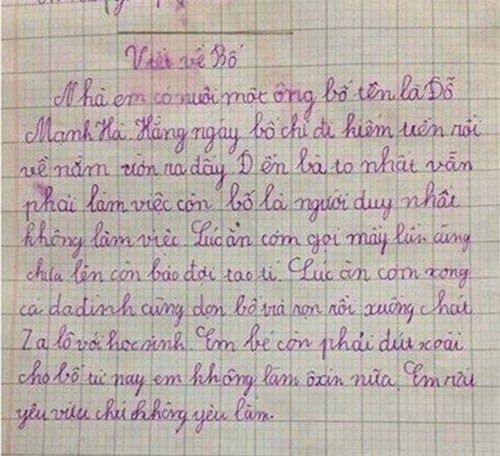 Viết về Bố
Nhà em có nuôi một ông bố tên là Đỗ
Mạnh Hà. Hằng ngày bố chỉ đi kiếm tiền rồi
về nằm ườn ra đấy. Đến bà to nhất vẫn
phải làm việc còn bố là người duy nhất
không làm việc. Lúc ăn cơm gọi mấy lần cũng
chưa lên còn bảo đợi tao tí. Lúc ăn cơm xong
cả da đình cùng dọn bố vừa rọn rồi xuống chát
Za lô với học sinh. Em bé còn phải đút xoài
cho bố từ nay em không làm ôxin nữa. Em rất
yêu vừa chứ không yêu lắm.